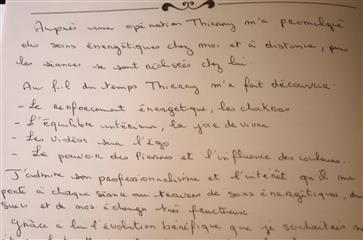 Auprès une opération Thierry m'a promulgué
des soins énergétiques chez moi et à distance, puis
les séances se sont réalisées chez lui.
Au fil du temps Thierry m'a fait découvrir
- Le renforcement énergétique, les chakras
- L'équilibre intérieur, la joie de vivre
- Les vidéos sur l'égo
- Le pouvoir des Pierres et l'influence des couleurs..
J'admire son professionnalisme et l'intérêt qu'il me
porte à chaque séance au travers de soins énergétiques, du
suivi et de nos échanges très fructueux
Grâce à lui l'évolution bénéfique que je souhaitais